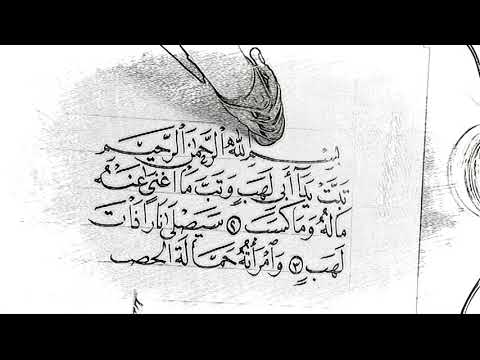 بِسْمِ اللهِ الرَّحْمٰنِ الرَّحِيمِ
تَبَّتْ يَدَا أَبِي لَهَبٍ وَتَبَّ مَا أَغْنَىٰ عَنْهُ
مَالُهُ وَمَا كَسَبَ ٢ سَيَصْلَىٰ نَارًا ذَاتَ
لَهَبٍ ٣ وَٱمْرَأَتُهُ حَمَّالَةَ الْحَطَبِ